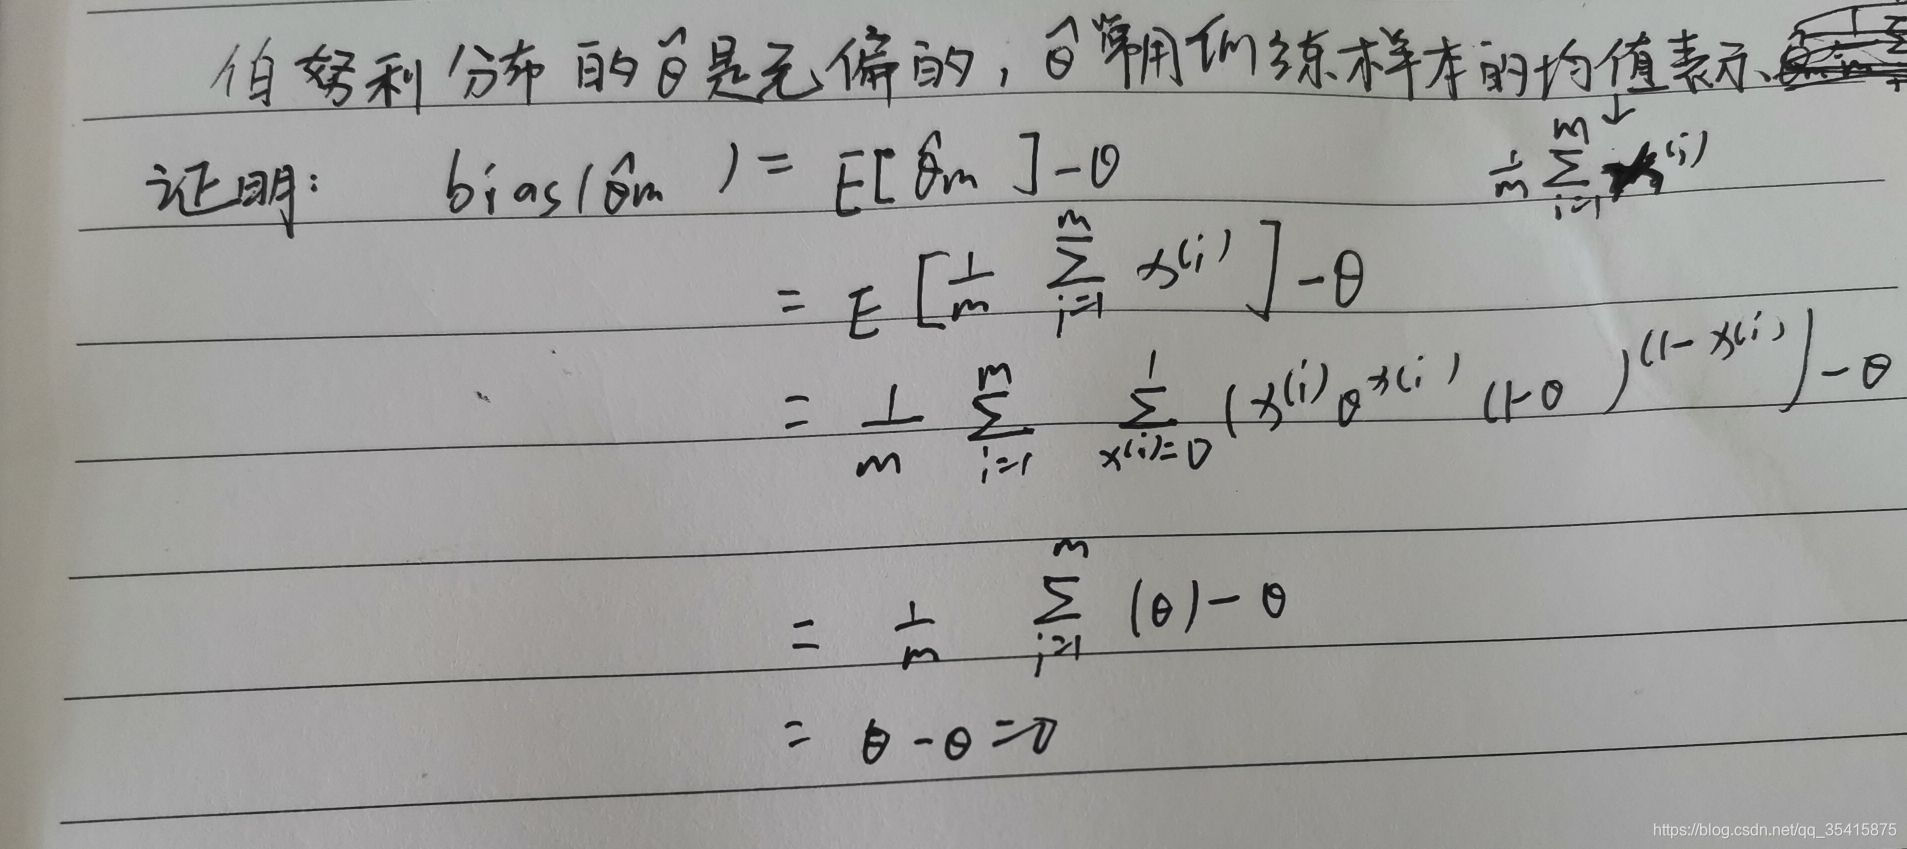 伯努利分布的θ̂是无偏的，θ̂常用训练样本的均值表示
↓
证明： bias(θ̂m) = E[θ̂m] - θ
1/m ∑_{i=1}^{m} x^(i)
= E[1/m ∑_{i=1}^{m} x^(i)] - θ
= 1/m ∑_{i=1}^{m} ∑_{x^(i)=0}^{1} (x^(i) θ^{x^(i)} (1-θ)^{(1-x^(i))}) - θ
= 1/m ∑_{i=1}^{m} (θ) - θ
= θ - θ = 0
https://blog.csdn.net/qq_35415875